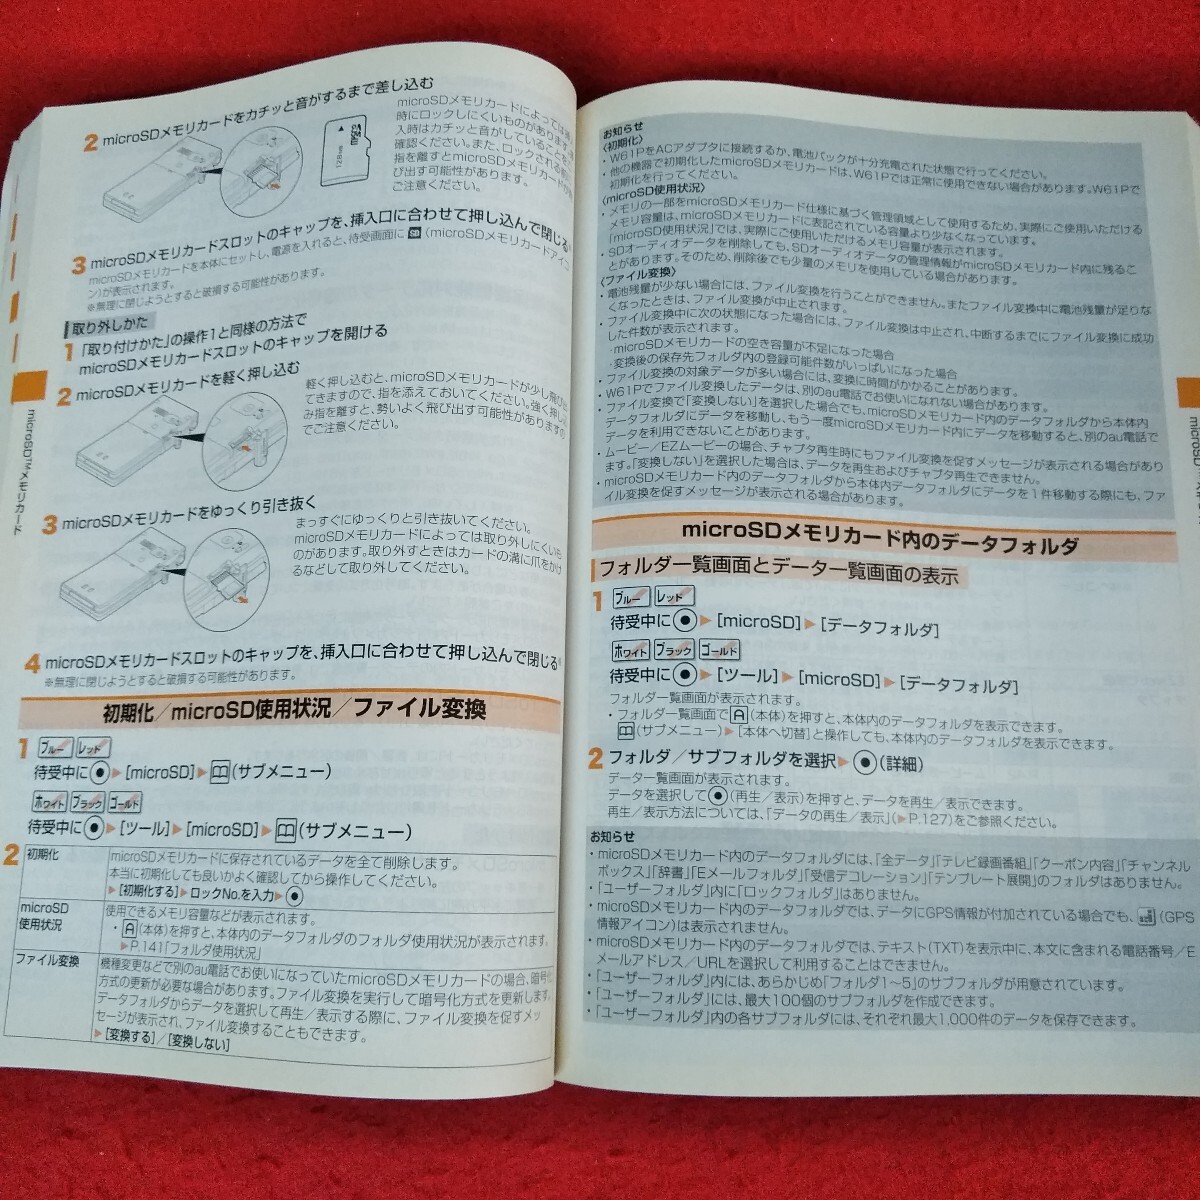 2 microSDメモリカードをカチッと音がするまで差し込む
microSDメモリカードによっては
時にロックしにくいものがあります。
入時はカチッと音がしていることを
確認ください。また、ロックされる前に
指を離すとmicroSDメモリカードが
び出す可能性があります。
ご注意ください。
128MB
3 microSDメモリカードスロットのキャップを、挿入口に合わせて押し込んで閉じる※
microSDメモリカードを本体にセットし、電源を入れると、待受画面に (microSDメモリカードアイコ
ン)が表示されます。
※無理に閉じようとすると破損する可能性があります。
取り外しかた
1 「取り付けかた」の操作1と同様の方法で
microSDメモリカードスロットのキャップを開ける
2 microSDメモリカードを軽く押し込む
軽く押し込むと、microSDメモリカードが少し飛び出
てきますので、指を添えておいてください。強く押し込
み指を離すと、勢いよく飛び出す可能性がありますの
でご注意ください。
3 microSDメモリカードをゆっくり引き抜く
まっすぐにゆっくりと引き抜いてください。
microSDメモリカードによっては取り外しにくいも
のがあります。取り外すときはカードの溝に爪をかけ
るなどして取り外してください。
4 microSDメモリカードスロットのキャップを、挿入口に合わせて押し込んで閉じる※
※無理に閉じようとすると破損する可能性があります。
初期化／microSD使用状況／ファイル変換
1 ブルー レッド
待受中に▶[microSD]▶(サブメニュー)
ホワイト ブラック ゴールド
待受中に▶[ツール]▶[microSD]▶(サブメニュー)
2 初期化
microSDメモリカードに保存されているデータを全て削除します。
本当に初期化しても良いかよく確認してから操作してください。
▶[初期化する]▶ロックNo.を入力▶
microSD
使用状況
使用できるメモリ容量などが表示されます。
・A(本体)を押すと、本体内のデータフォルダのフォルダ使用状況が表示されます。
▶P.141「フォルダ使用状況」
ファイル変換
機種変更などで別のau電話でお使いになっていたmicroSDメモリカードの場合、暗号化
方式の更新が必要な場合があります。ファイル変換を実行して暗号化方式を更新します。
データフォルダからデータを選択して再生／表示する際に、ファイル変換を促すメッ
セージが表示され、ファイル変換することもできます。
▶[変換する]／[変換しない]
microSD™メモリカード
お知らせ
〈初期化〉
・W61PをACアダプタに接続するか、電池パックが十分充電された状態で行ってください。
・他の機器で初期化したmicroSDメモリカードは、W61Pでは正常に使用できない場合があります。W61Pで
初期化を行ってください。
〈microSD使用状況〉
・メモリの一部をmicroSDメモリカード仕様に基づく管理領域として使用するため、実際にご使用いただける
メモリ容量は、microSDメモリカードに表記されている容量より少なくなっています。
「microSD使用状況」では、実際にご使用いただけるメモリ容量が表示されます。
・SDオーディオデータを削除しても、SDオーディオデータの管理情報がmicroSDメモリカード内に残るこ
とがあります。そのため、削除後でも少量のメモリを使用している場合があります。
〈ファイル変換〉
・電池残量が少ない場合には、ファイル変換を行うことができません。またファイル変換中に電池残量が足りな
くなったときは、ファイル変換が中止されます。
・ファイル変換中に次の状態になった場合には、ファイル変換は中止され、中断するまでにファイル変換に成功
した件数が表示されます。
-microSDメモリカードの空き容量が不足になった場合
-変換後の保存先フォルダ内の登録可能件数がいっぱいになった場合
・ファイル変換の対象データが多い場合には、変換に時間がかかることがあります。
・W61Pでファイル変換したデータは、別のau電話でお使いになれない場合があります。
・ファイル変換で「変換しない」を選択した場合でも、microSDメモリカード内のデータフォルダから本体内
データフォルダにデータを移動し、もう一度microSDメモリカード内にデータを移動すると、別のau電話で
データを利用できないことがあります。
・ムービー／EZムービーの場合、チャプタ再生時にもファイル変換を促すメッセージが表示される場合があり
ます。「変換しない」を選択した場合は、データを再生およびチャプタ再生できません。
・microSDメモリカード内のデータフォルダから本体内データフォルダにデータを1件移動する際にも、ファ
イル変換を促すメッセージが表示される場合があります。
microSDメモリカード内のデータフォルダ
フォルダ一覧画面とデータ一覧画面の表示
1 ブルー レッド
待受中に▶[microSD]▶[データフォルダ]
ホワイト ブラック ゴールド
待受中に▶[ツール]▶[microSD]▶[データフォルダ]
フォルダ一覧画面が表示されます。
・フォルダ一覧画面でA(本体)を押すと、本体内のデータフォルダを表示できます。
(サブメニュー)▶[本体へ切替]と操作しても、本体内のデータフォルダを表示できます。
2 フォルダ／サブフォルダを選択▶(詳細)
データ一覧画面が表示されます。
データを選択して(再生／表示)を押すと、データを再生／表示できます。
再生／表示方法については、「データの再生／表示」(▶P.127)をご参照ください。
お知らせ
・microSDメモリカード内のデータフォルダには、「全データ」「テレビ録画番組」「クーポン内容」「チャンネル
ボックス」「辞書」「Eメールフォルダ」「受信デコレーション」「テンプレート展開」のフォルダはありません。
・「ユーザーフォルダ」内に「ロックフォルダ」はありません。
・microSDメモリカード内のデータフォルダでは、データにGPS情報が付加されている場合でも、(GPS
情報アイコン)は表示されません。
・microSDメモリカード内のデータフォルダでは、テキスト(TXT)を表示中に、本文に含まれる電話番号／E
メールアドレス／URLを選択して利用することはできません。
・「ユーザーフォルダ」内には、あらかじめ「フォルダ1～5」のサブフォルダが用意されています。
・「ユーザーフォルダ」には、最大100個のサブフォルダを作成できます。
・「ユーザーフォルダ」内の各サブフォルダには、それぞれ最大1,000件のデータを保存できます。